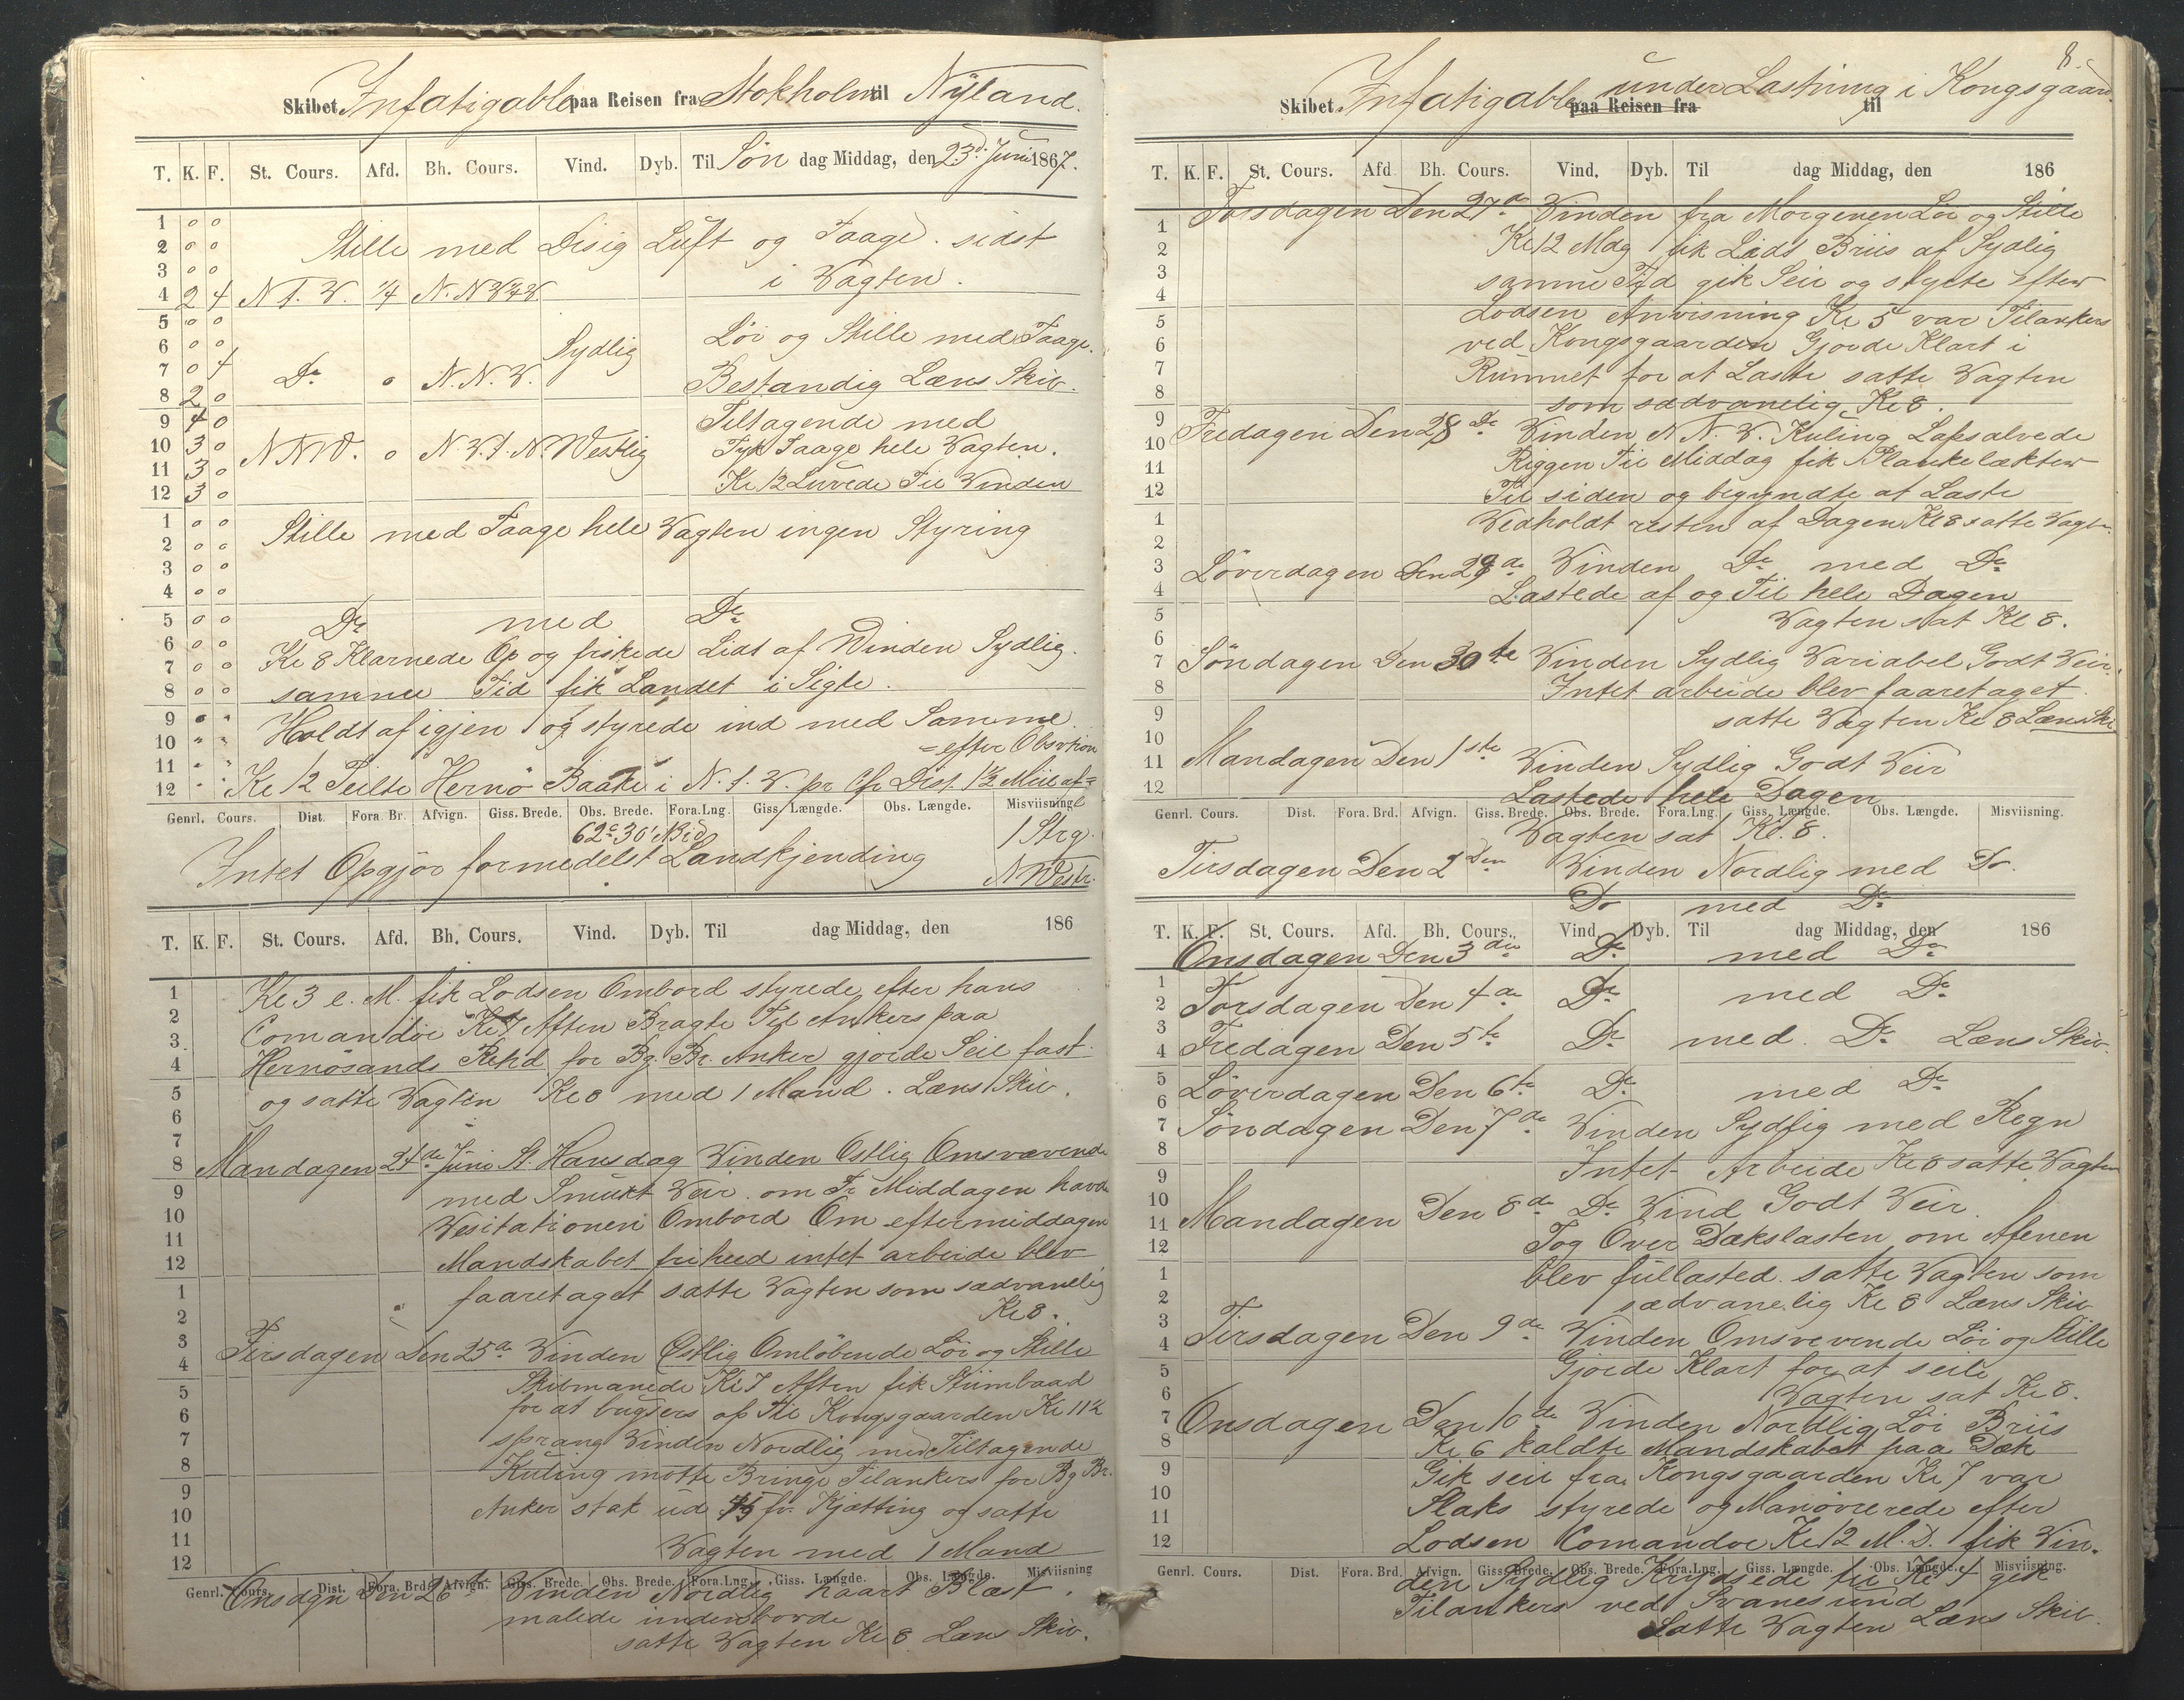 Skibet Infatigable paa Reisen fra Stokholm til Nyland.
T. K. F. St. Cours. Afd. Bh. Cours. Vind. Dyb. Til Søn dag Middag, den 23d. Juni 1867.
1 0 0
2 0 0 Stille med Disig Luft og Taage. sidst
3 0 0 i Vagten.
4 2 4 N t. V. 1/4 N. N V 3/4 V
5 0 0
6 0 0 Sydlig Løi og Stille med Taage.
7 0 4 Do 0 N. N. V.
8 2 0 Bestandig Læns Skib.
9 4 0 Tiltagende med
10 3 0 N N V. 0 N. V. t. N. Westlig Tyk Taage hele Vagten.
11 3 0
12 3 0 Kl 12 Luvede Til Vinden
1 0 0 Stille med Taage hele Vagten ingen Styring
2 0 0
3 0 0
4 0 0
5 0 0 Do med Do
6 0 0 Kl 8 Klarnede Op og friskede Lidt af Winden Sydlig.
7 0 0
8 0 0 samme Tid fik Landet i Sigte.
9 " " Holdt af igjen og styrede ind med Samme
10 " " = efter Obsvtion
11 " "
12 " " Kl 12 Peilte Hernø Baake i N. t. V. pr Cps Dist. 1 1/2 Miil af=
Genrl. Cours. Dist. Fora. Br. Afvign. Giss. Brede. Obs. Brede. Fora.Lng. Giss. Længde. Obs. Længde. Misviisning
62° 30' N Brd 1 Strg.
Intet Opgjør formedelst Landkjending N Westr.
T. K. F. St. Cours. Afd. Bh. Cours. Vind. Dyb. Til dag Middag, den 186
1 Kl 3 e. M. fik Lodsen Ombord styrede efter hans
2 Comandoe Kl 7 Aften Bragte Til Ankers paa
3
4 Hernösands Rehd for Bg. Br. Anker gjorde Seil fast
5 og satte Vagten Kl 8 med 1 Mand. Læns Skib.
6
7
8 Mandagen 24de Juni St. Hansdag Vinden Ostlig Omsvævende
9 med Smukt Veir. om Fr Middagen havde
10 Vesitationen Ombord Om eftermiddagen
11
12 Mandskabet friheed intet arbeide blev
1 faaretaget satte Vagten som sædvanelig
2 Kl 8.
3 Tirsdagen Den 25de Vinden Østlig Omløbende Løi og Stille
4
5 Skibmanede Kl 7 Aften fik Stümbaad
6 for at bugsers op Til Kongsgaarden Kl 11 1/2
7 sprang Vinden Nordlig med Tiltagende
8 Kuling motte Bringe Tilankers for Bg Br.
9
10 Anker stak ud 45 fv. Kjætting og satte
11 Vagten med 1 Mand
12
Genrl. Cours. Dist. Fora. Brd. Afvign. Giss. Brede. Obs. Brede. Fora.Lng. Giss. Længde. Obs. Længde. Misviisning
Onsdagn Den 26te Vinden Nordlig haart Blæst.
malede indenborde
satte Vagten Kl 8 Læns Skib.
8.
Skibet Infatigable paa Reisen fra under Lastning i Kongsgaard til
T. K. F. St. Cours. Afd Bh. Cours. Vind. Dyb. Til dag Middag, den 186
Torsdagen Den 27de Vinden fra Morgenen Løi og Stille
1 Kl 12 Mdag fik Lidt Briis af Sydlig
2
3 samme Tid gik Seil og styrte Efter
4 Lodsen Anvisning Kl 5 var Tilankers
5
6 ved Kongsgaarden Gjorde Klart i
7 Rummet for at Laste satte Vagten
8 som sædvanelig Kl 8.
9 Fredagen Den 28de Vinden N N. V. Kuling Lapsalvede
10 Riggen Til Middag fik Plankelækter
11
12 Til siden og begyndte at Laste
1 Vedholdt resten af Dagen Kl 8 satte Vagten
2
3 Løverdagen Den 29de Vinden Do med Do
4 Lastede af og Til hele Dagen
5 Vagten sat Kl 8.
6
7 Søndagen Den 30te Vinden Sydlig Variabel Godt Veir.
8 Intet arbeide blev faaretaget
9 satte Vagten Kl 8 Læns Skib
10
11 Mandagen Den 1ste Vinden Sydlig Godt Veir
12 Lastede hele Dagen
Genrl. Cours. Dist. Fora. Brd. Afvign. Giss. Brede. Obs. Brede. Fora.Lng. Giss. Længde. Obs. Længde. Misviisning.
Vagten sat Kl. 8.
Tirsdagen Den 2den Vinden Nordlig med Do.
Do med Do
T. K. F. St. Cours. Afd. Bh. Cours. Vind. Dyb. Til dag Middag, den 186
Onsdagen Den 3die Do med Do
1
2 Torsdagen Den 4de Do med Do
3
4 Fredagen Den 5te Do med. Do Læns Skib.
5
6 Løverdagen Den 6te Do med Do
7 Søndagen Den 7de Vinden Sydlig med Regn
8 Intet Arbeide Kl 8 satte Vagten
9
10 Mandagen Den 8de Do Vind Godt Veir.
11
12 Tog Over Dækslasten om Afenen
1 blev fullasted. satte Vagten som
2 sædvanelig Kl 8 Læns Skib
3 Tirsdagen Den 9de Vinden Omsvevende Løi og Stille
4
5 Gjorde Klart for at seile
6 Vagten sat Kl 8.
7 Onsdagen Den 10de Vinden Nordlig Løi Briis
8 Kl 6 kaldte Mandskabet paa Dæk
9 Gik seil fra Kongsgaarden Kl 7 var
10 Slaks styrede og Manøvrerede efter
11
12 Lodsen Comandoe Kl 12 M. D. fik Vin-
Genrl. Cours. Dist. Fora. Brd. Afvign. Giss. Brede. Obs. Brede. Fora.Lng. Giss. Længde. Obs. Længde. Misviisning.
den Sydlig Krydsede til Kl 4 gik
Tilankers ved Svanesund
Satte Vagten Læns Skib.